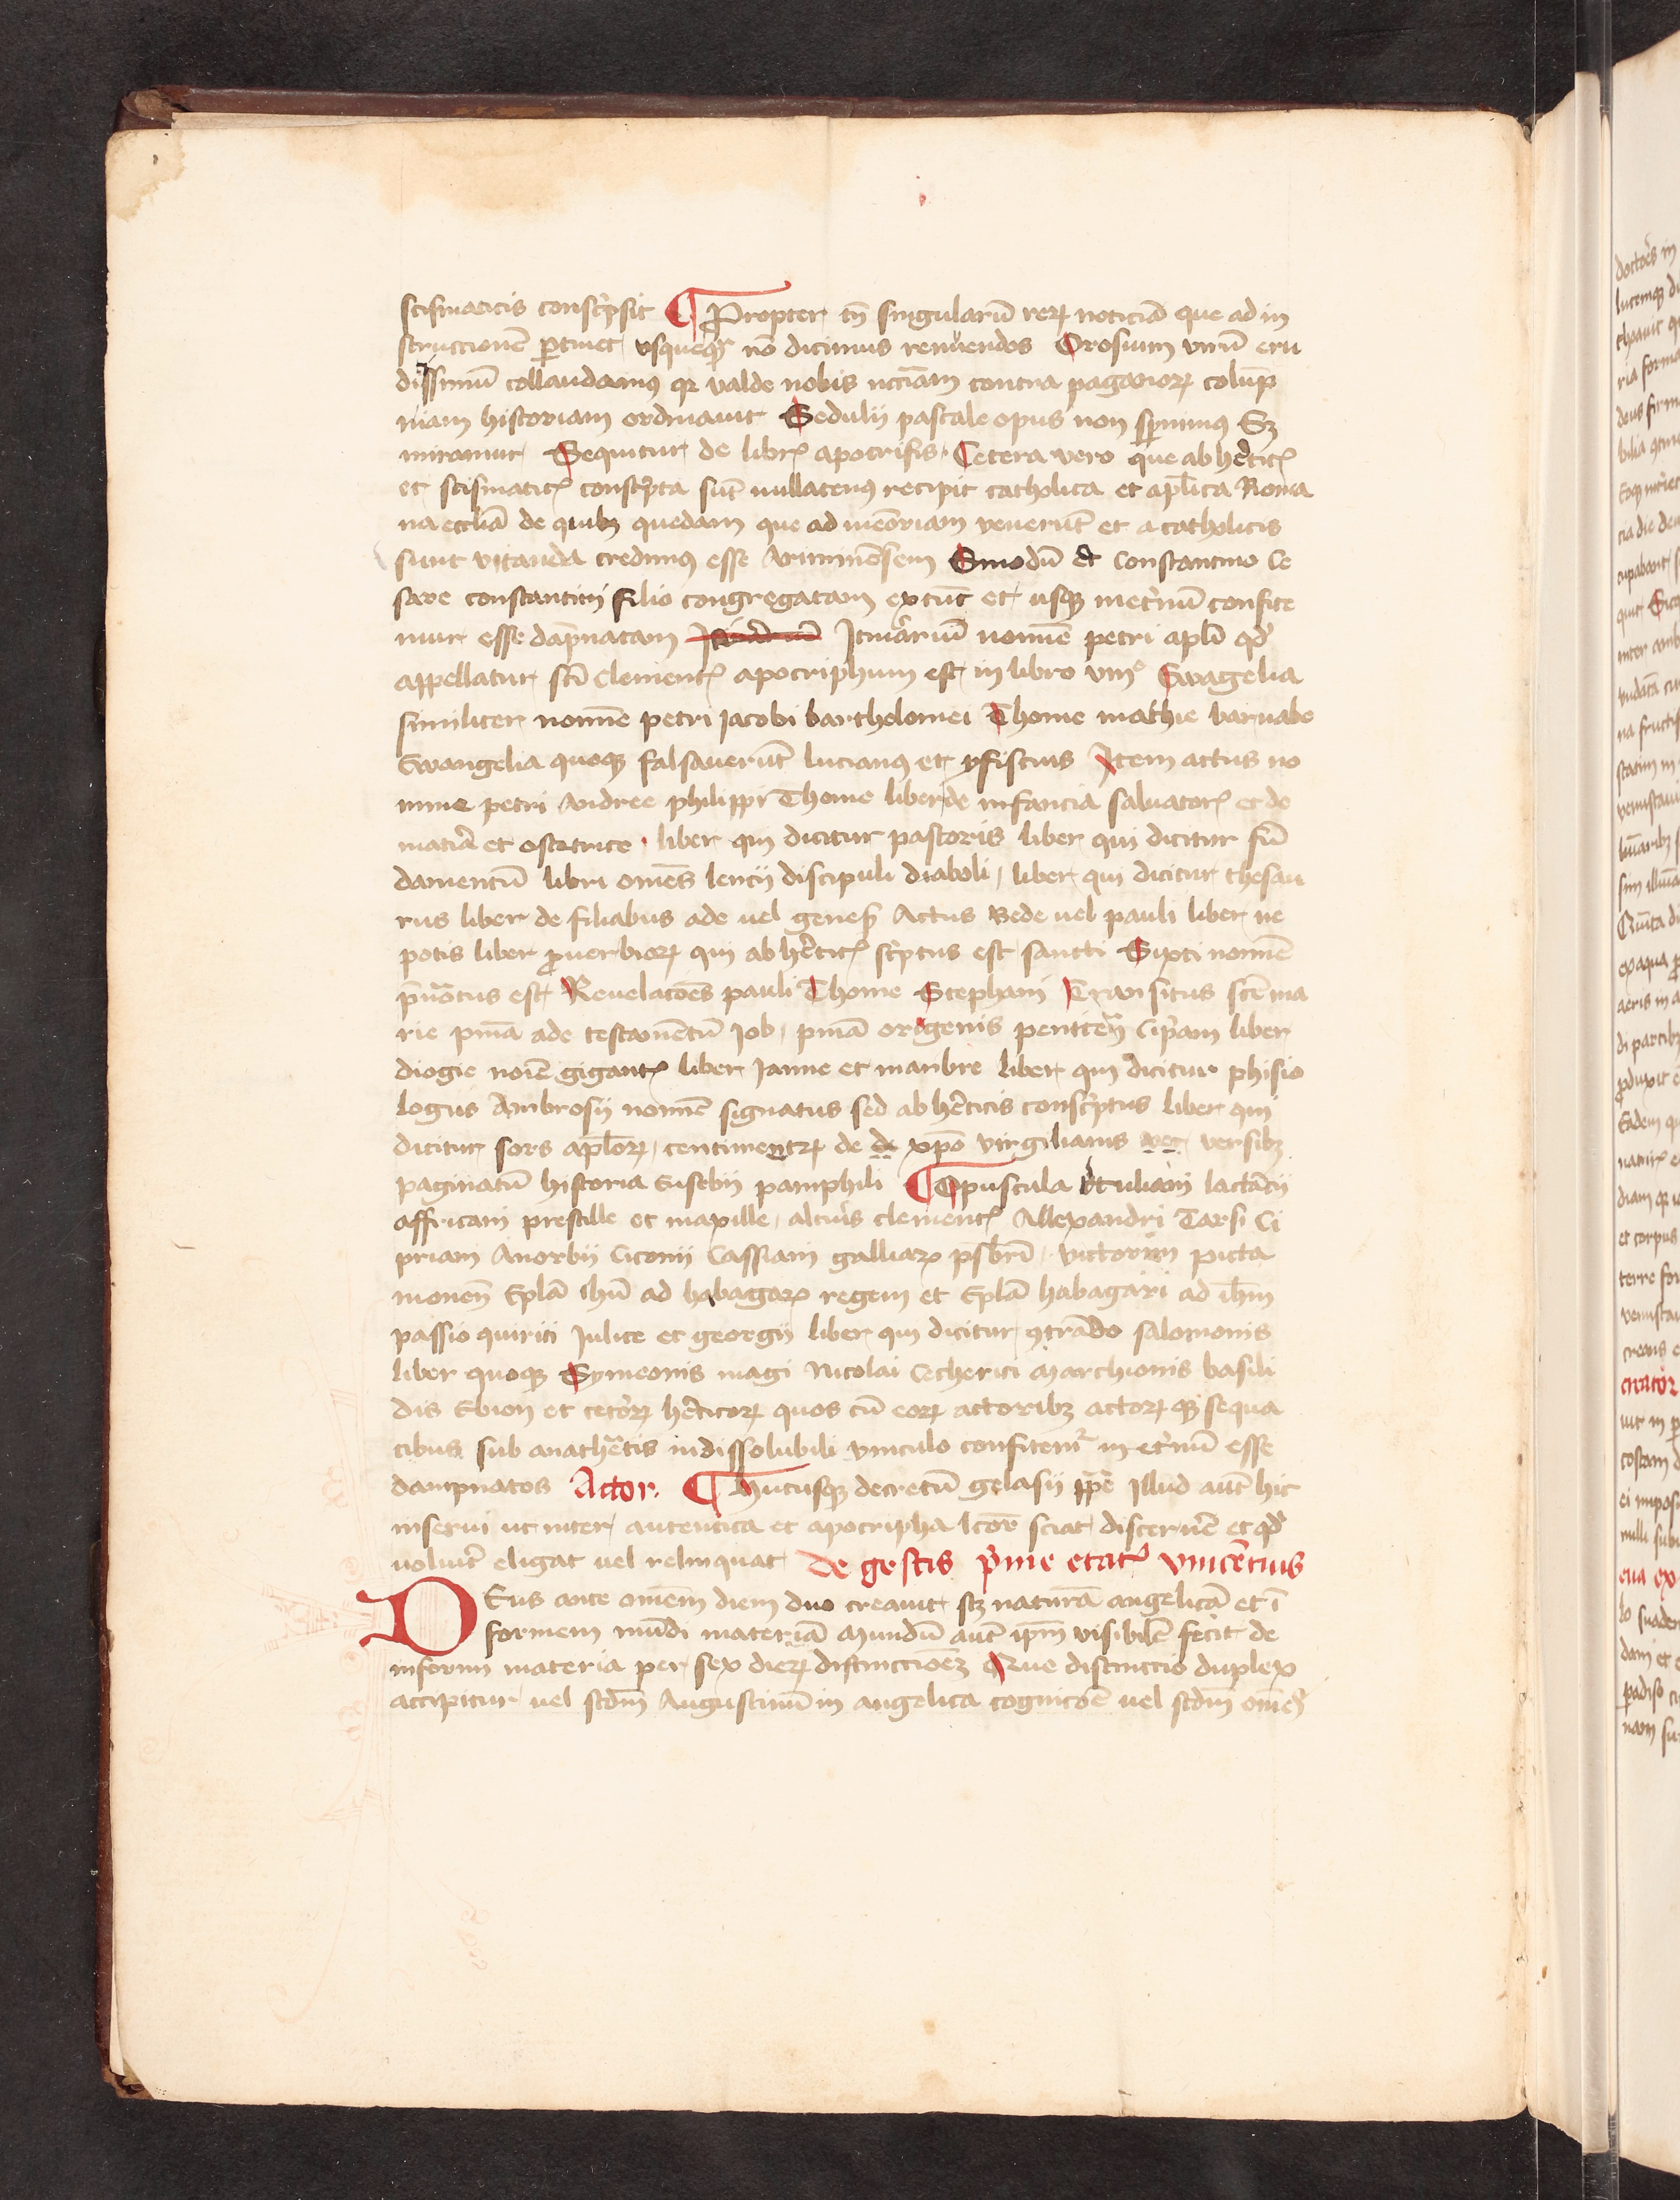 scismaticis conscͥpsit ¶ Propter tn̄ singulariū reꝝ noticiā que ad in
struccionē ꝑtinet usquequaqꝫ nō dicimus renuendos Orosium virū eru
ditissimū collaudamꝰ qꝛ valde nobis nccͣiam contra paganioꝝ colūp
niam historiam ordinauit Sedulii pascale opus non sꝑnimꝰ Sꝫ
miramur Sequitur de libris apocrifis. Cetera vero que ab hēticis
et scismaticis conscͥpta sūt nullatenꝰ recipit catholica et apl̄ica Roma
na eccl̄ia de quibꝫ quedam que ad meōriam venerūt et a catholicis
sunt vitanda credimꝰ esse Ariminēsem Sinodū et Constantino Ce
sare constantini filio congregatam extūc et usqꝫ inet̄nū confite
mur esse dāpnatam Itinͣrariū nomīe petri apl̄i qd̄
appellatur scī Clementis apocriphum est in libro viiiͦ Ewāgelia
similiter nomīe petri Jacobi bartholomei Thome mathie barnabe
Ewangelia quoqꝫ falsauerūt lucianꝰ et ysiscius Item actus no
mine petri Andree philippi Thome liber de infancia saluatoris et de
matͥa et ostetrice . liber qui dicitur pastoris liber qui dicitur fū
damentū libri omēs lencii discipuli diaboli / liber qui dicitur thesau
rus liber de filiabus ade uel genesis Actus Vede uel pauli liber ne
potis liber ꝓuerbioꝝ qui ab hēticis scͥptus est sancti Sixti nomīe
pͥnotus est Reuelacōēs pauli Thome Stephani Transitus scē ma
rie pn̄ia ade testamentū Job / pn̄ia origenis penitēcia Cipͥani liber
diogie noīe gigantis liber Jamne et manbre liber qui dicitur phisio
logus Ambrosii nomīe signatus sed ab hēticis conscͥptus liber qui
dicitur sors apl̄oꝝ / centimentꝝ de de xp̄o virgilianis ver versibꝫ
paginatū historia Eusebii pamphili ¶ Opuscula tertuliani lactācii
affricani prestille et maxille / alteriꝰ clementis Allexandri Tarsi Ci
priani Anorbii Ticonii Cassiani galliaꝝ p̄sbr̄i / victorini picta
monen̄ Epl̄ā ihū ad habagaꝝ regem et Epl̄ā habagari ad ih̄m
passio quirici Julite et georgii liber qui dicitur ꝯtrādco salomonis
liber quoqꝫ Symeonis magi Nicolai Echerici Marchionis basili
dis Ebion et cetōꝝ hēticoꝝ quos cū eoꝝ actoribꝫ actoꝝqꝫ sequa
cibus sub anathētis indissolubili vinculo confitemͬ in et̄nū esse
dampnatos Actor. ¶ Hucusqꝫ decretū gelasii pp̄e Illud aūt hic
inserui ut inter autentica et apocripha lcōr sciat discernē et qd̄
voluīt eligat uel relinquat De gestis pͥme etatis vincētius
DEus ante omēm diem duo creauit scꝫ naturā angelicā et ī
formem mūdi materiā Mundū aūt ip̄m visibilē fecit de
informi materia per sex dieꝝ distinccōēꝫ Que distinccio duplex
accipitur uel scdm̄ Augustinū in angelica cognicōē uel scdm̄ om̄es